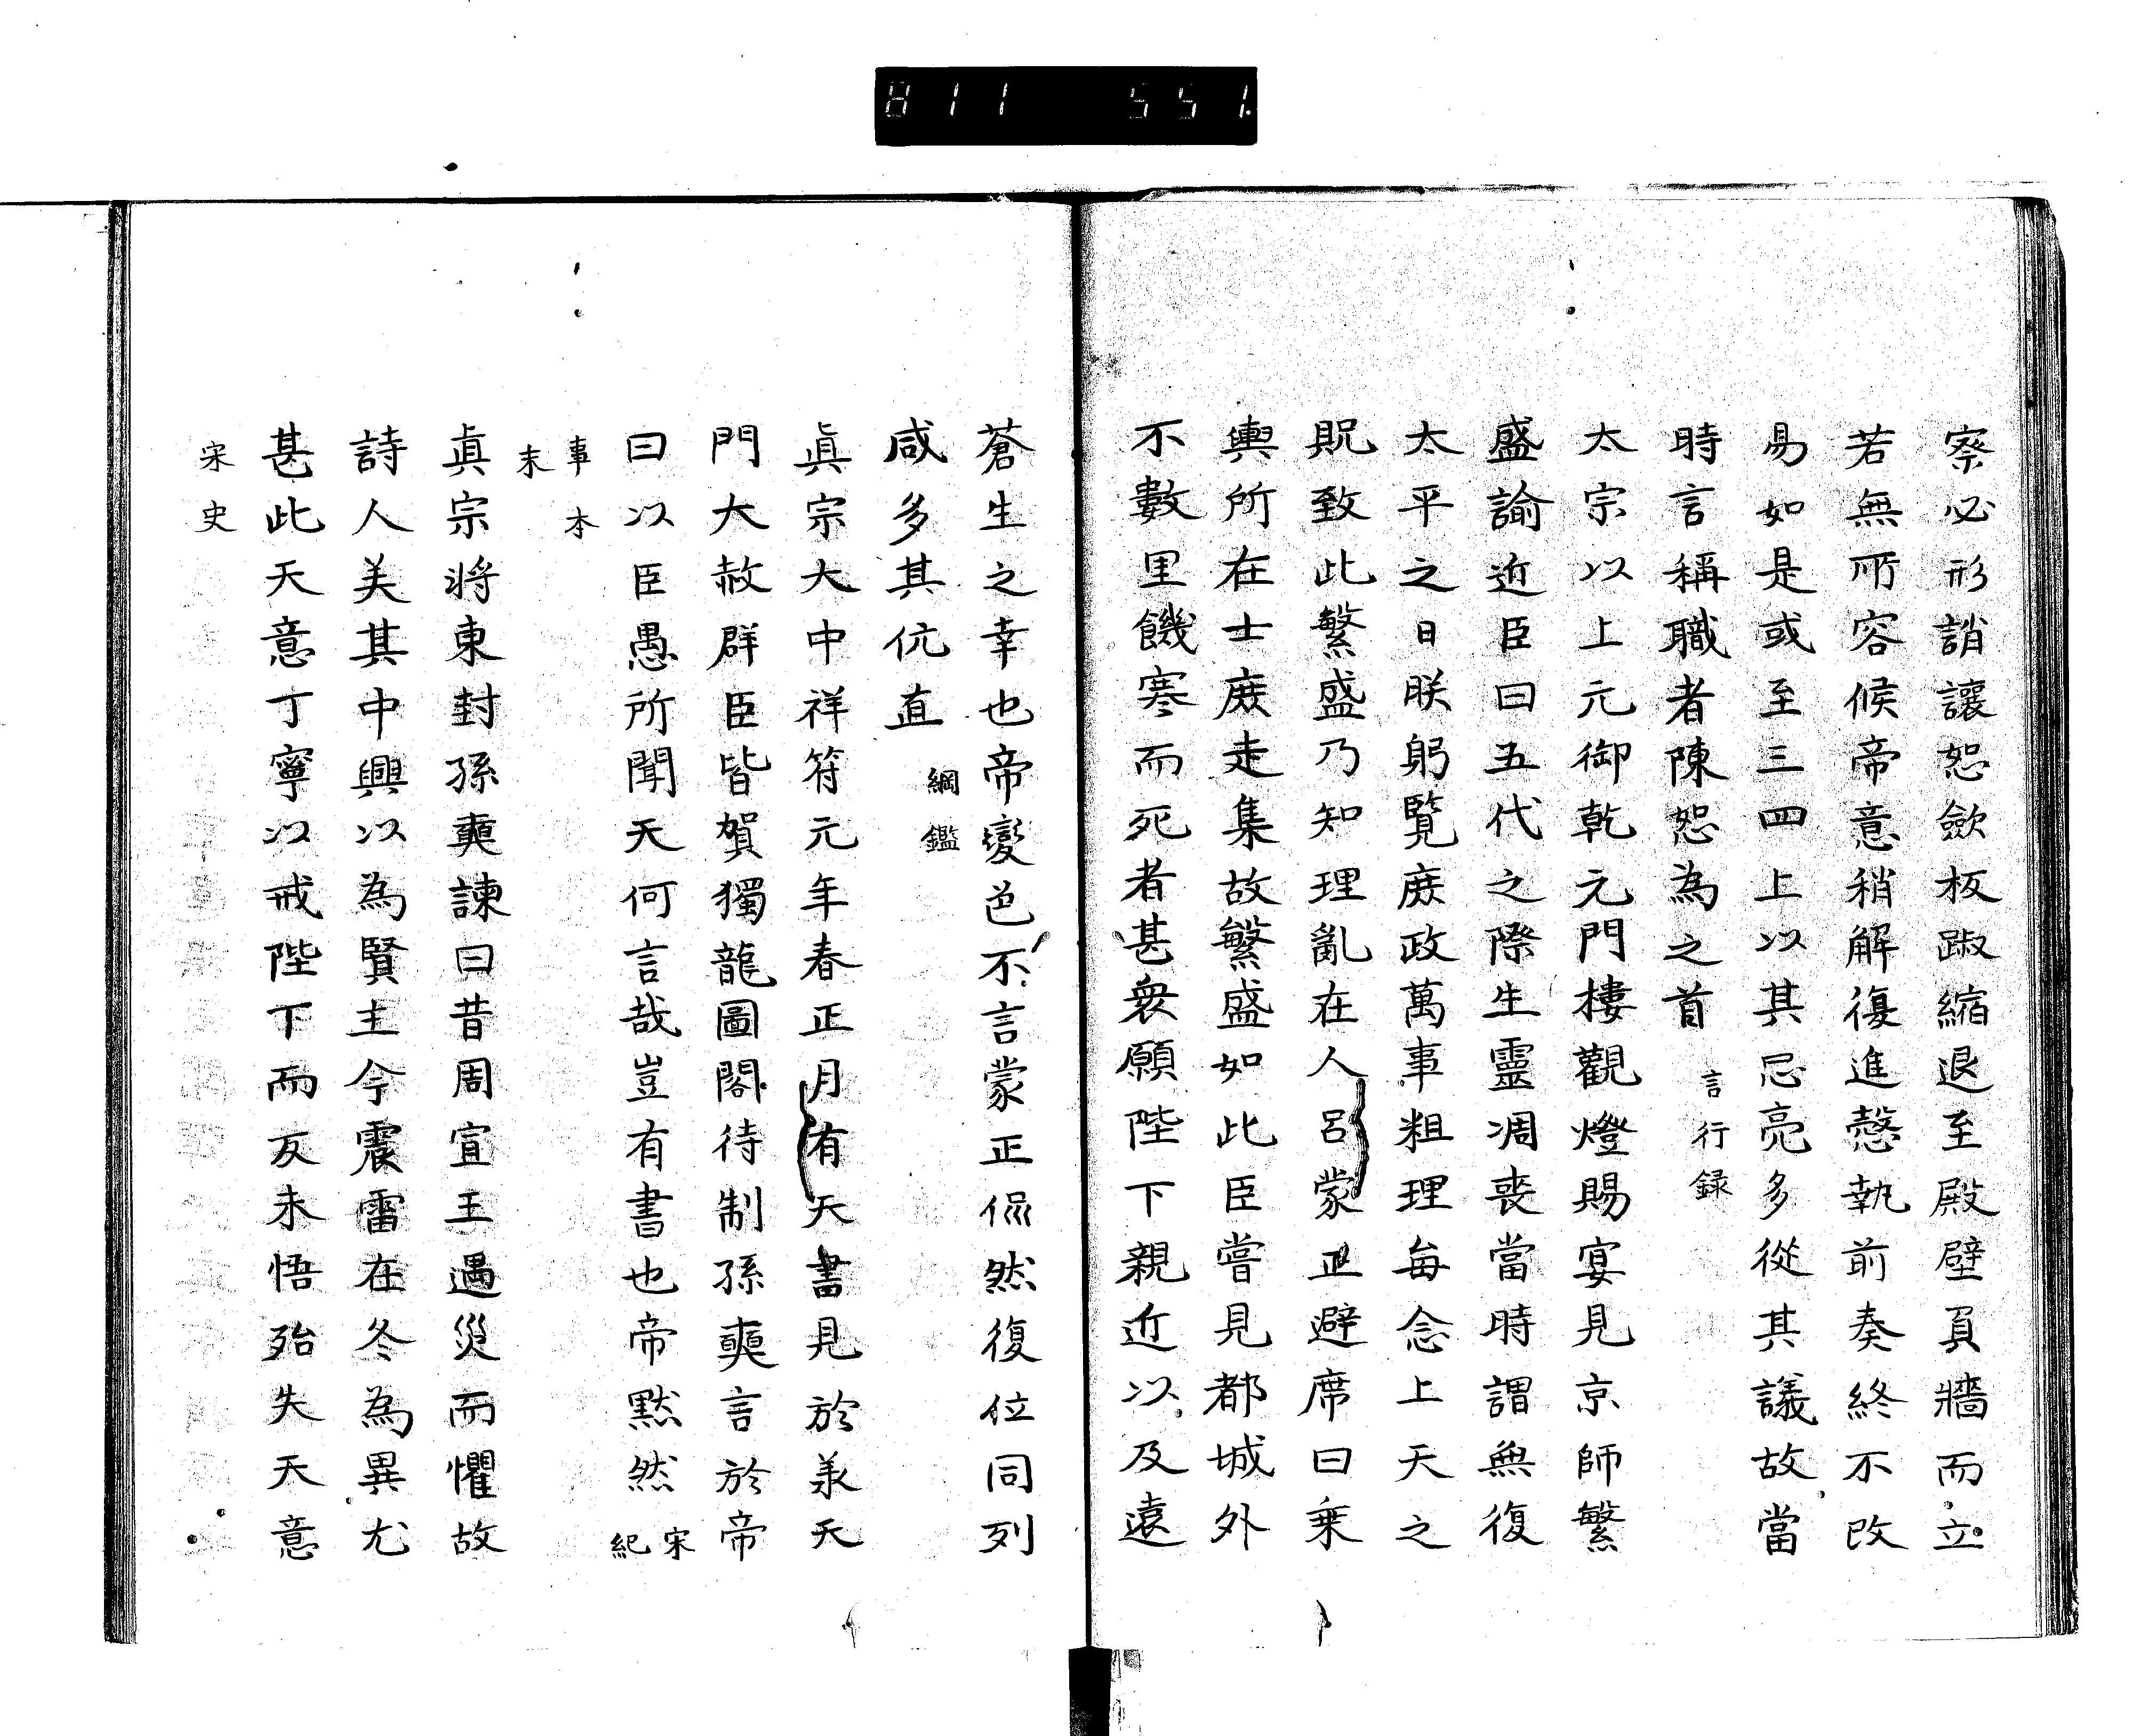 811 551.
察必形誚讓恕斂板踧縮退至殿壁負牆而立
若無所容候帝意稍解復進愨執前奏終不改
易如是或至三四上以其忌亮多從其議故當
時言稱職者陳恕為之首 言行録
太宗以上元御乾元門樓觀燈賜宴見京師繁
盛諭近臣曰五代之際生靈凋喪當時謂無復
太平之日朕躬覽庶政萬事粗理每念上天之
貺致此繁盛乃知理亂在人呂蒙正避席曰乗
輿所在士庶走集故繁盛如此臣嘗見都城外
不數里饑寒而死者甚衆願陛下親近以及遠
蒼生之幸也帝變色不言蒙正侃然復位同列
咸多其伉直 綱鑑
眞宗大中祥符元年春正月有天書見於承天
門大赦群臣皆賀獨龍圖閣待制孫奭言於帝
曰以臣愚所聞天何言哉豈有書也帝默然 宋紀
事本末
眞宗將東封孫奭諫曰昔周宣王遇災而懼故
詩人美其中興以為賢主今震雷在冬為異尤
甚此天意丁寧以戒陛下而反未悟殆失天意
宋史